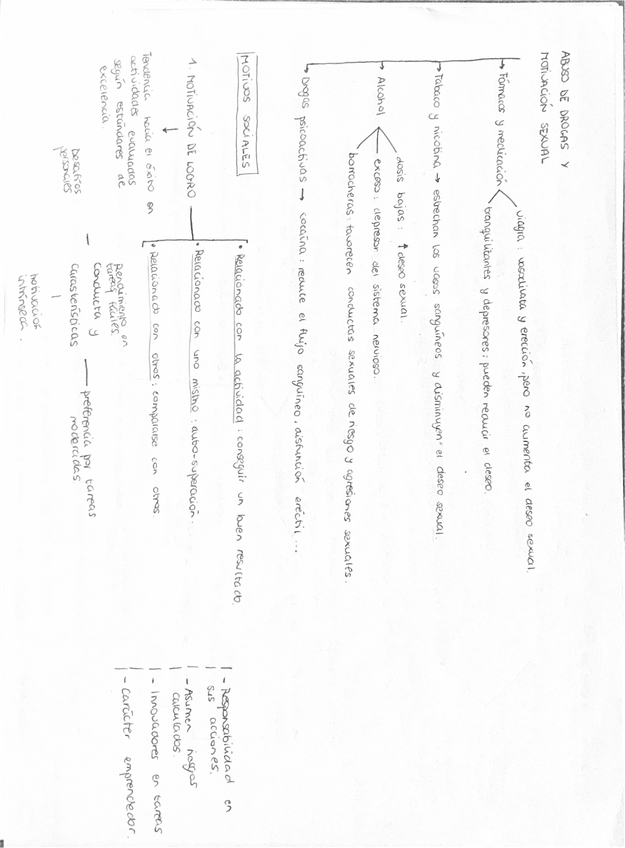 ABUSO DE DROGAS Y
MOTIVACIÓN SEXUAL
→ Fármacos y medicación
viagra: vasodilata y erección, pero no aumenta el deseo sexual.
tranquilitantes y depresores: pueden reducir el deseo.
→ Tabaco y nicotina → estrechan los vasos sanguíneos y disminuyen el deseo sexual.
→ Alcohol
dosis bajas: ↑ deseo sexual.
exceso: depresor del sistema nervioso.
borracheras: favorecen conductas sexuales de riesgo y agresiones sexuales.
→ Drogas psicoactivas → cocaína: reduce el flujo sanguíneo, disfunción eréctil...
MOTIVOS SOCIALES
1. MOTIVACIÓN DE LOGRO
• Relacionado con la actividad: conseguir un buen resultado.
• Relacionado con uno mismo: auto-superación.
• Relacionado con otros: compararse con otros.
Tendencia hacia el éxito en
actividades evaluadas
según estándares de
excelencia
Desafíos
personales
Rendimiento en
tareas fáciles
Conducta y
características
preferencia por tareas
moderadas
motivación
intrínseca.
- Responsabilidad en
sus acciones.
- Asumen riesgos
calculados.
- Innovadores en tareas
- Carácter emprendedor.